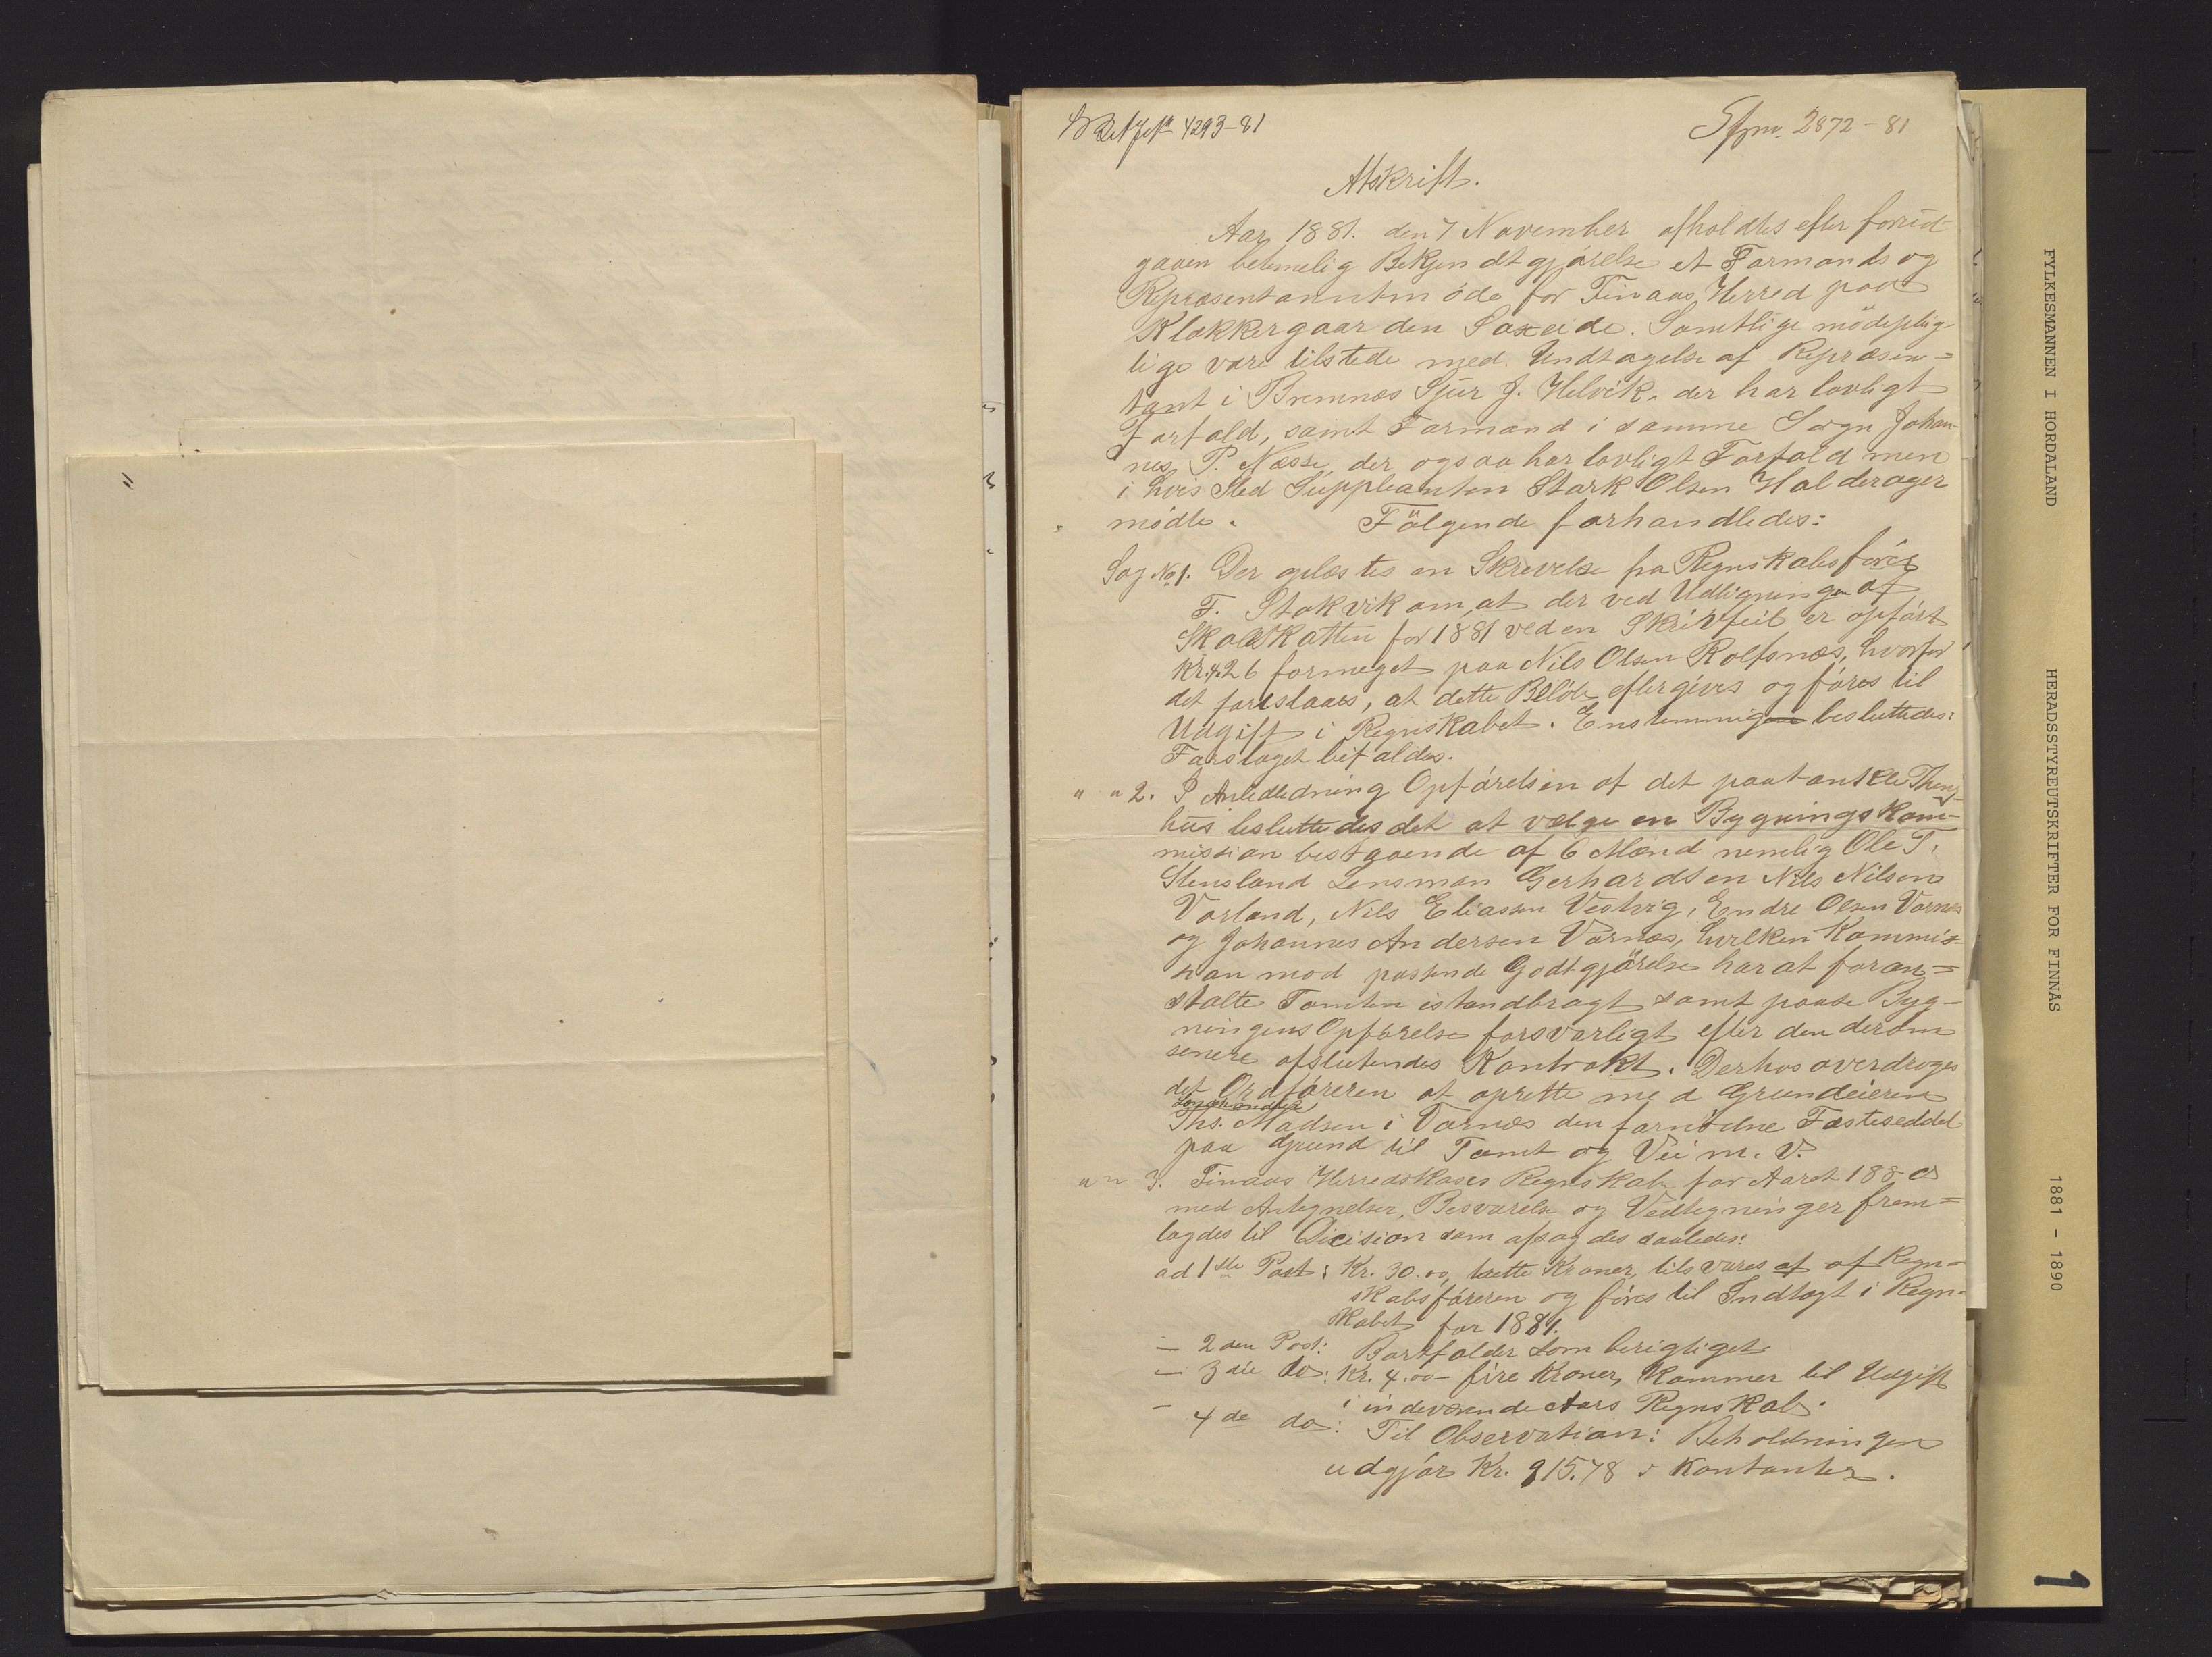 4293-81
2872-81
Afskrift.
Aar 1881. den 7 November afholdtes efter forud
gaaen betimelig Bekjendtgjørelse et Formands og
Repræsentantmöde for Finaas Herred paa
Klokkergaarden Saxeide. Samtlige mödeplig-
lige vare tilstede med Undtagelse af Repræsen=
tant i Bremnæs Sjur J. Helvik, der har lovligt
Forfald, samt Formand i samme Sogn Johan-
nes P. Næsse, der ogsaa har lovligt Forfald men
i hvis Sted Suppleanten Stark Olsen Halderager
mödte. Fölgende forhandledes:
Sag No 1. Der oplæstes en Skrivelse fra Regnskabsfører
F. Stokvik om, at der ved Udligningen af
Skoleskatten for 1881 ved en Skrivfeil er opført
Kr. 4.26 formeget paa Nils Olsen Rolfsnæs, hvorfor
det foreslaaes, at dette Beløb eftergives og føres til
Udgift i Regnskabet. Enstemmig besluttedes:
Forslaget bifaldes.
" " 2. I Anledledning Opførelsen af det paatænkte Thing-
hus besluttedes det at vælge en Bygningskom-
mission bestgaaende af 6 Mænd nemlig Ole T.
Stensland Lensman Gerhardsen Nils Nilsen
Vorland, Nils Eliassen Vestvig, Endre Olsen Vornes
og Johannes Andersen Vornæs, hvilken Kommis-
sion mod passende Godtgjörelse har at foran=
stalte Tomten istandbragt samt paase Byg-
ningens Opførelse forsvarligt efter den derom
senere afsluttendes Kontrakt. Derhos overdroges
det Ordføreren at oprette med Grundeieren
Landhandler
Ths. Madsen i Vornæs den fornødne Fæsteseddel
paa Grund til Tomt og Vei m. V.
" " 3. Finaas Herredskases Regnskab for Aaret 1880
med Antegnelser, Besvarelse og Vedtegninger frem=
lagdes til Dicision som afsagdes saaledes:
ad 1ste Post: Kr. 30.00, trette Kroner, tilsvares af af Regn=
skabsføreren og føres til Indtægt i Regn-
skabet for 1881.
— 2den Post: Bortfalder som berigtiget
— 3die do: Kr. 4.00 – fire Kroner, kommer til Udgift
i indeværende Aars Regnskab.
— 4de do: Til Observation: Beholdningen
udgjør Kr. 915.78 i Kontanter.
FYLKESMANNEN I HORDALAND
HERADSSTYREUTSKRIFTER FOR FINNÅS
1881 - 1890
1